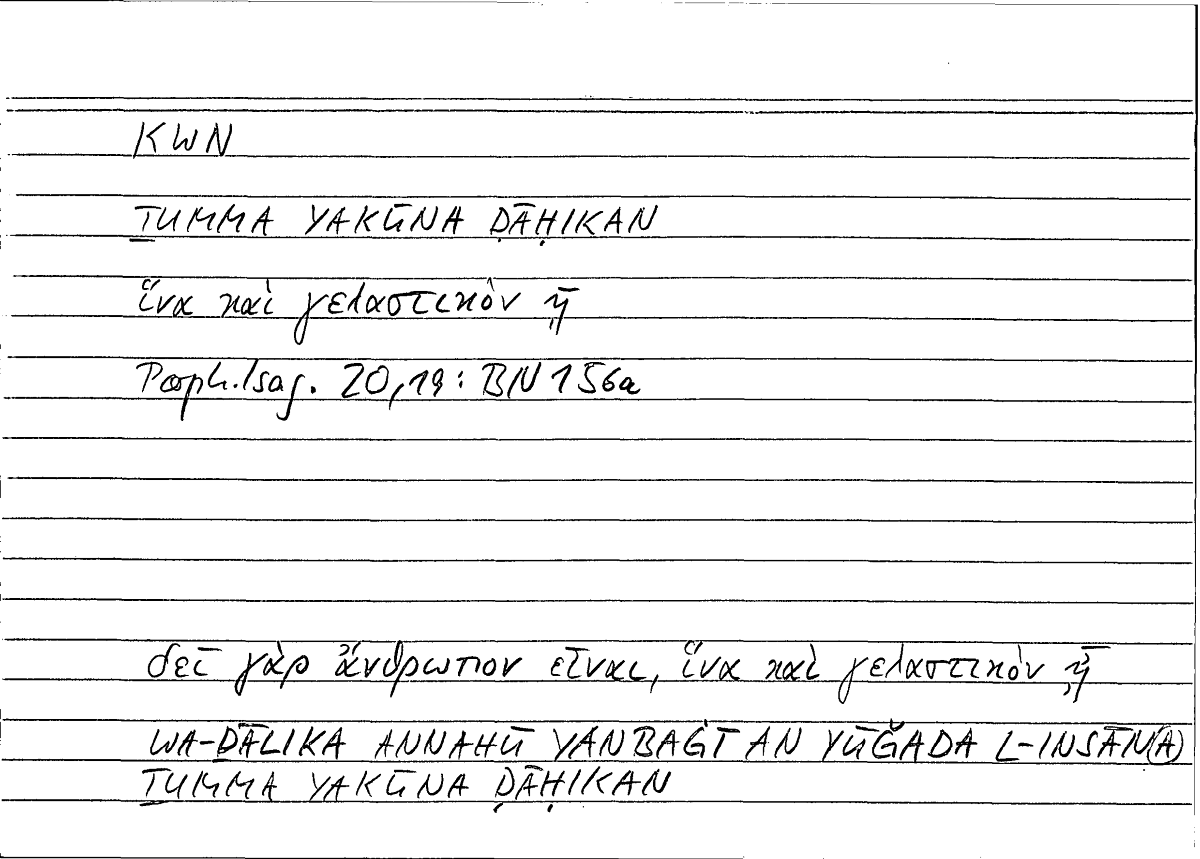 KWN
ṮUMMA YAKŪNA ḌĀḤIKAN
ἵνα καὶ γελαστικὸν ᾖ
Porph. Isag. 20,19: BN 156a
δεῖ γὰρ ἄνθρωπον εἶναι, ἵνα καὶ γελαστικὸν ᾖ
WA-ḎĀLIKA ANNAHŪ YANBAĠĪ AN YŪǦADA L-INSĀN(A)
ṮUMMA YAKŪNA ḌĀḤIKAN